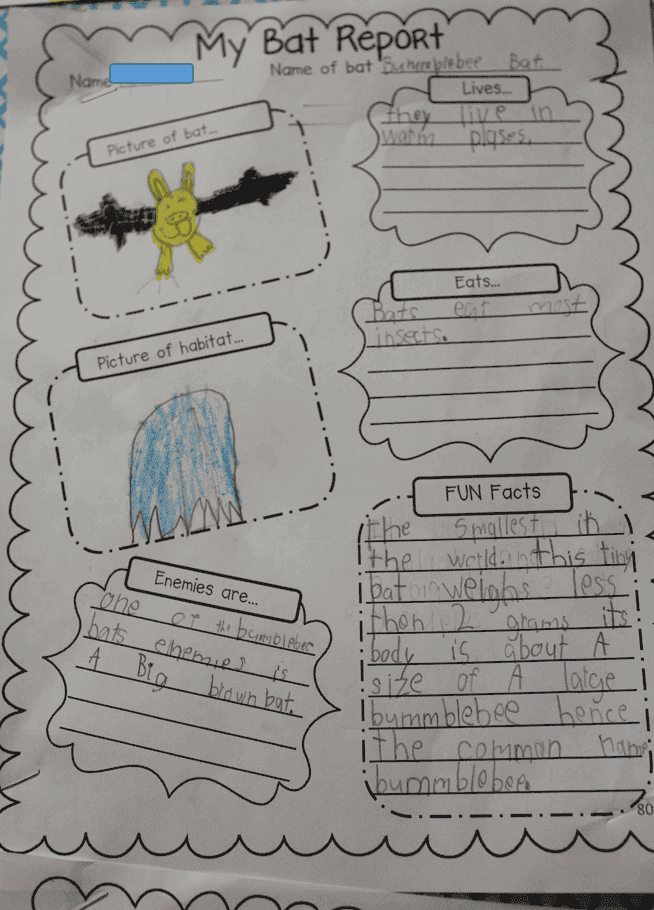 My Bat Report
Name
Name of bat Bummblebee Bat.
Picture of bat...
Lives...
they live in
warm plases.
Eats...
Bats eat most
insects.
Picture of habitat...
Enemies are...
one of the bummblebee
bats enemies is
A Big blown bat.
FUN Facts
the smallest in
the world. this tiny
bat weighs less
then 2 grams its
body is about A
size of A large
bummblebee hence
the common name
bummblebee.
80